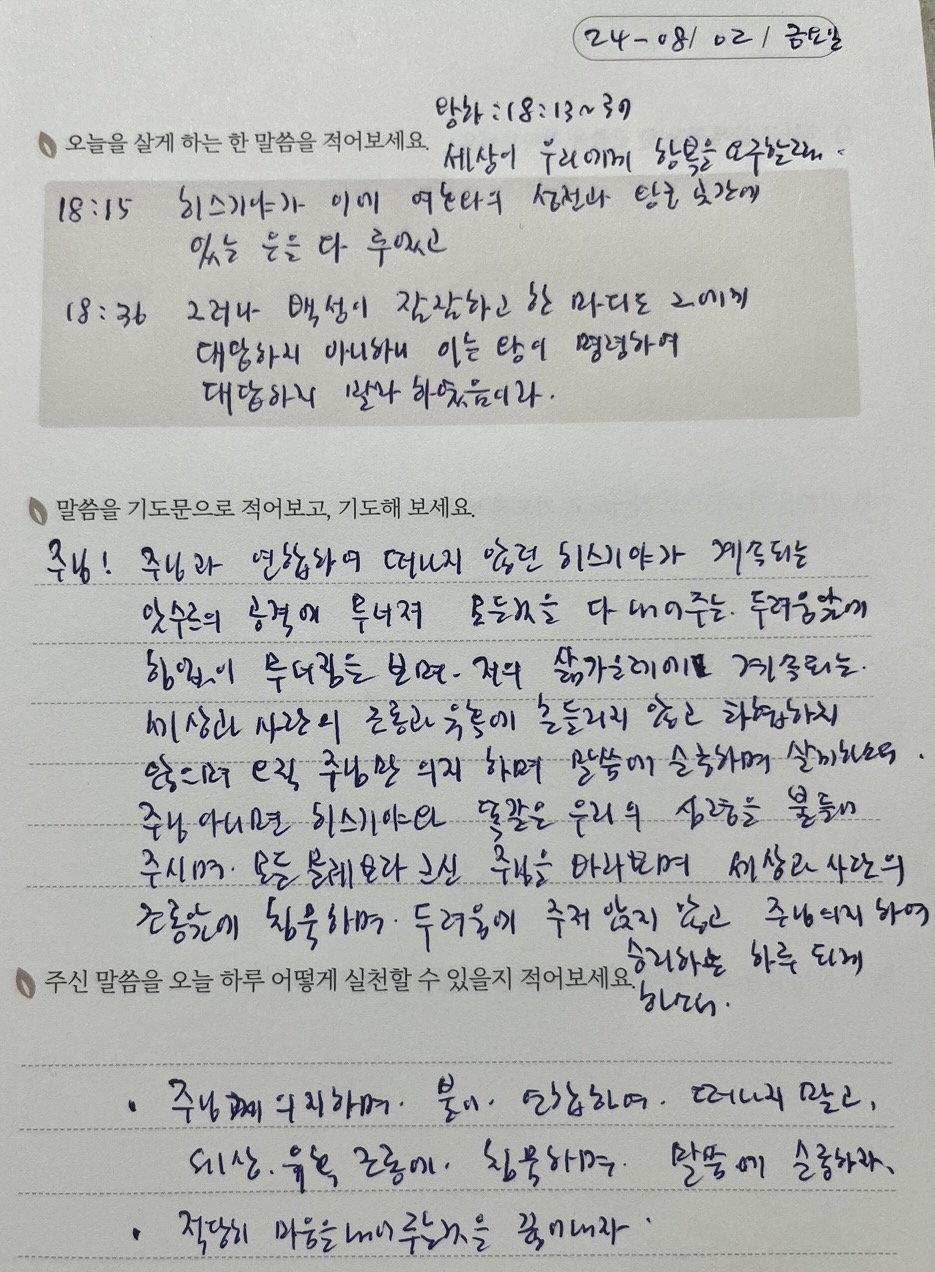 24-08/02/ 금요일
왕하:18:13~37
오늘을 살게 하는 한 말씀을 적어보세요.
세상이 우리에게 항복을 요구할때.
18:15 히스기야가 이에 여호와의 성전과 왕궁 곳간에
있는 은을 다 주었고
18:36 그러나 백성이 잠잠하고 한 마디도 그에게
대답하지 아니하니 이는 왕이 명령하여
대답하지 말라 하였음이라.
말씀을 기도문으로 적어보고, 기도해 보세요.
주님! 주님과 연합하여 떠나지 않던 히스기야가 계속되는
앗수르의 공격에 무너져 모든것을 다 내어주는. 두려움앞에
힘없이 무너짐을 보며. 저의 삶가운데에 계속되는.
세상과 사단의 조롱과 유혹에 흔들리지 않고 타협하지
않으며 오직 주님만 의지 하며 말씀에 순종하며 살게하소서.
주님 아니면 히스기야와 똑같은 우리의 심령을 붙들어
주시며. 모든 문제보다 크신 주님을 바라보며 세상과 사단의
조롱앞에 침묵하며. 두려움에 주저 앉지 않고 주님의지 하여
승리하는 하루 되게
주신 말씀을 오늘 하루 어떻게 실천할 수 있을지 적어보세요.
하소서.
• 주님께 의지하며. 붙어. 연합하여. 떠나지 말고,
세상. 유혹 조롱에. 침묵하며. 말씀에 순종하라.
• 적당히 마음을 내어주는것을 끊어내자.